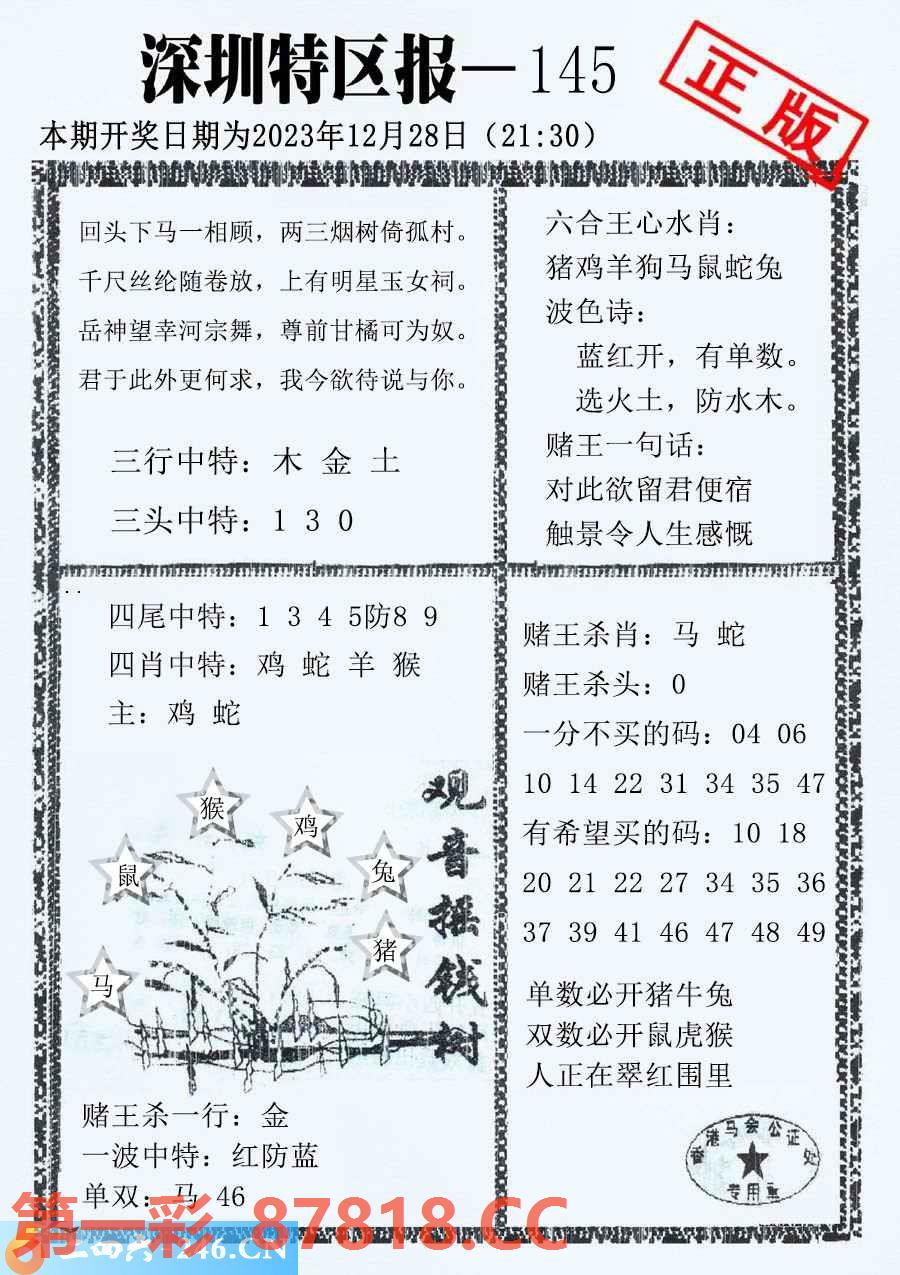 深圳特区报—145
正版
本期开奖日期为2023年12月28日（21:30）
回头下马一相顾，两三烟树倚孤村。
千尺丝纶随卷放，上有明星玉女祠。
岳神望幸河宗舞，尊前甘橘可为奴。
君于此外更何求，我今欲待说与你。
三行中特：木 金 土
三头中特：1 3 0
六合王心水肖：
猪鸡羊狗马鼠蛇兔
波色诗：
蓝红开，有单数。
选火土，防水木。
赌王一句话：
对此欲留君便宿
触景令人生感慨
四尾中特：1 3 4 5防8 9
四肖中特：鸡 蛇 羊 猴
主：鸡 蛇
观音摇钱树
猴
鸡
鼠
兔
猪
马
赌王杀一行：金
一波中特：红防蓝
单双：马 46
赌王杀肖：马 蛇
赌王杀头：0
一分不买的码：04 06
10 14 22 31 34 35 47
有希望买的码：10 18
20 21 22 27 34 35 36
37 39 41 46 47 48 49
单数必开猪牛兔
双数必开鼠虎猴
人正在翠红围里
香港马会公证处
专用章
第一彩 87818.CC
246.CN